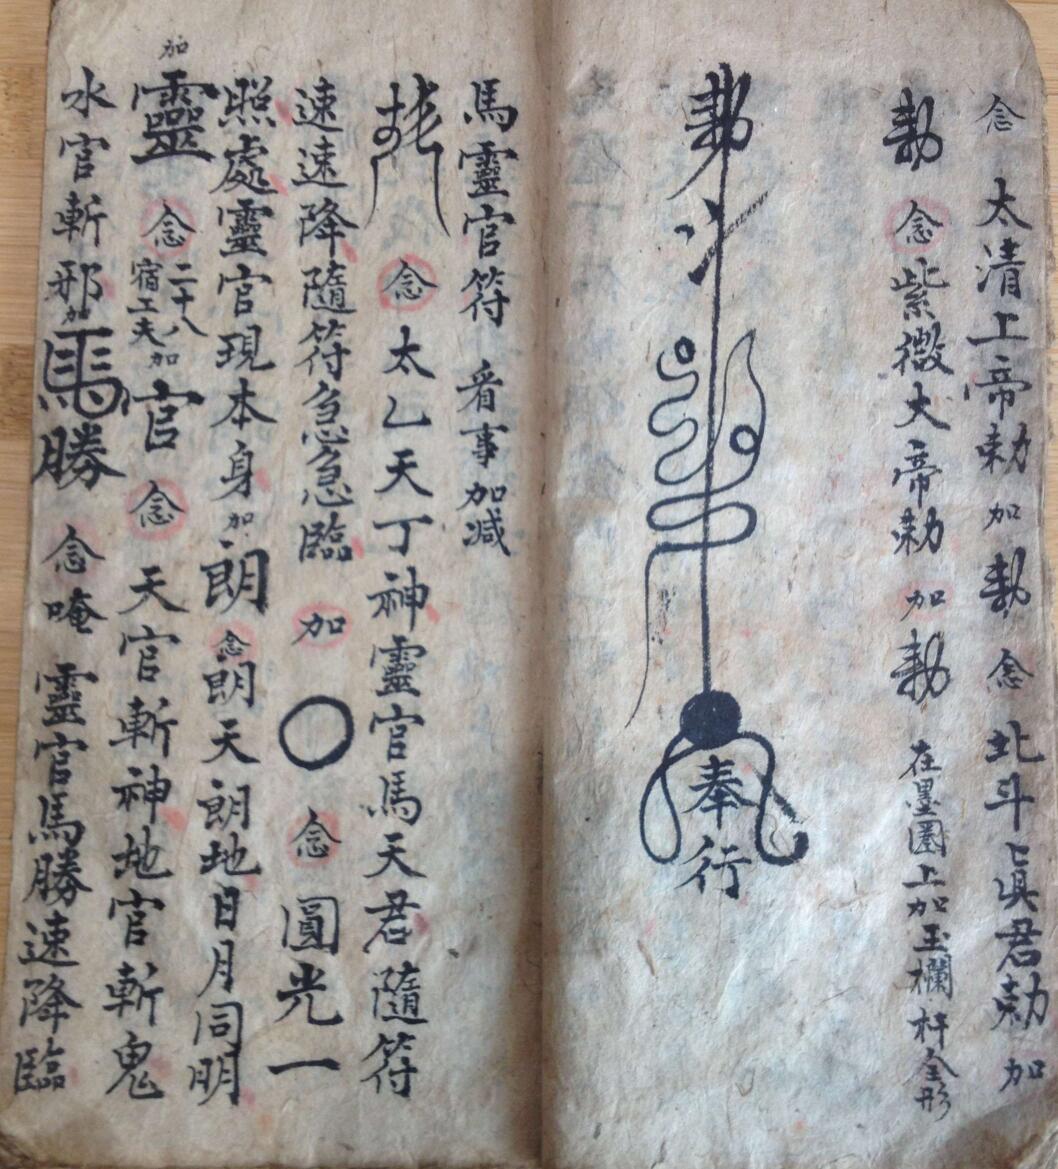 念 太清上帝勅 加 勅 念 北斗真君勅 加
勅 念 紫微大帝勅 加 勅 在墨圈上加玉欄杆全形
勅
奉行
馬靈官符 看事加减
念 太乙天丁神靈官馬天君隨符
速速降隨符急急臨 加 〇 念 圓光一
照處靈官現本身 加 朗 念 朗天朗地日月同明
加 靈 念 二十八宿工夫 加 官 念 天官斬神地官斬鬼
水官斬邪 加 馬勝 念唵 靈官馬勝速降臨